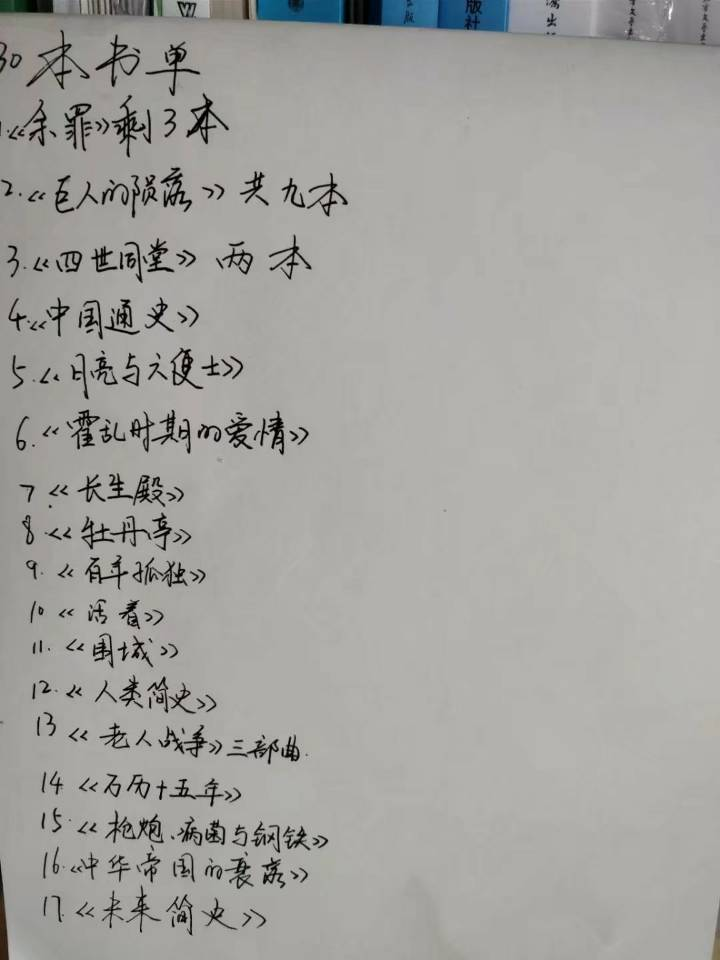 版社
30本书单
1.《余罪》剩3本
2.《巨人的陨落》共九本
3.《四世同堂》两本
4.《中国通史》
5.《月亮与六便士》
6.《霍乱时期的爱情》
7《长生殿》
8《牡丹亭》
9.《百年孤独》
10《活着》
11.《围城》
12.《人类简史》
13《老人战争》三部曲.
14《万历十五年》
15.《枪炮、病菌与钢铁》
16.《中华帝国的衰落》
17.《未来简史》